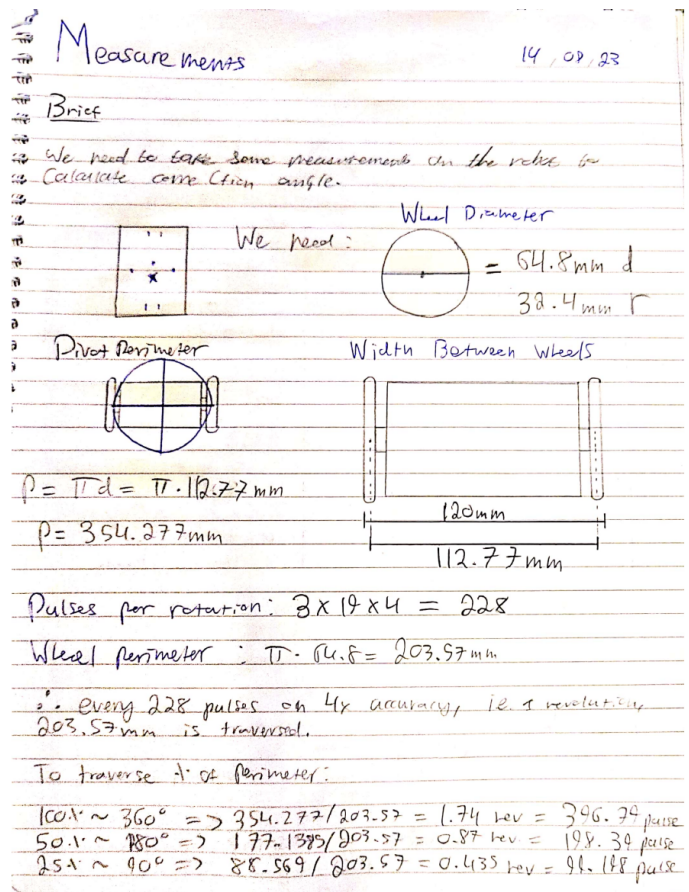 Measurements
14, 08, 23
Brief
We need to take some measurements on the robot to
Calculate correction angle.
We need:
Wheel Diameter
= 64.8mm d
32.4mm r
Pivot Perimeter
Width Between Wheels
P = πd = π·112.77mm
P = 354.277mm
120mm
112.77mm
Pulses per rotation: 3 x 19 x 4 = 228
Wheel perimeter : π · 64.8 = 203.57mm
∴ every 228 pulses on 4x accuracy, i.e. 1 revolution,
203.57mm is traversed.
To traverse % of perimeter:
100% ~ 360° => 354.277/203.57 = 1.74 rev = 396.79 pulse
50% ~ 180° => 177.1385/203.57 = 0.87 rev = 198.39 pulse
25% ~ 90° => 88.569/203.57 = 0.435 rev = 99.198 pulse